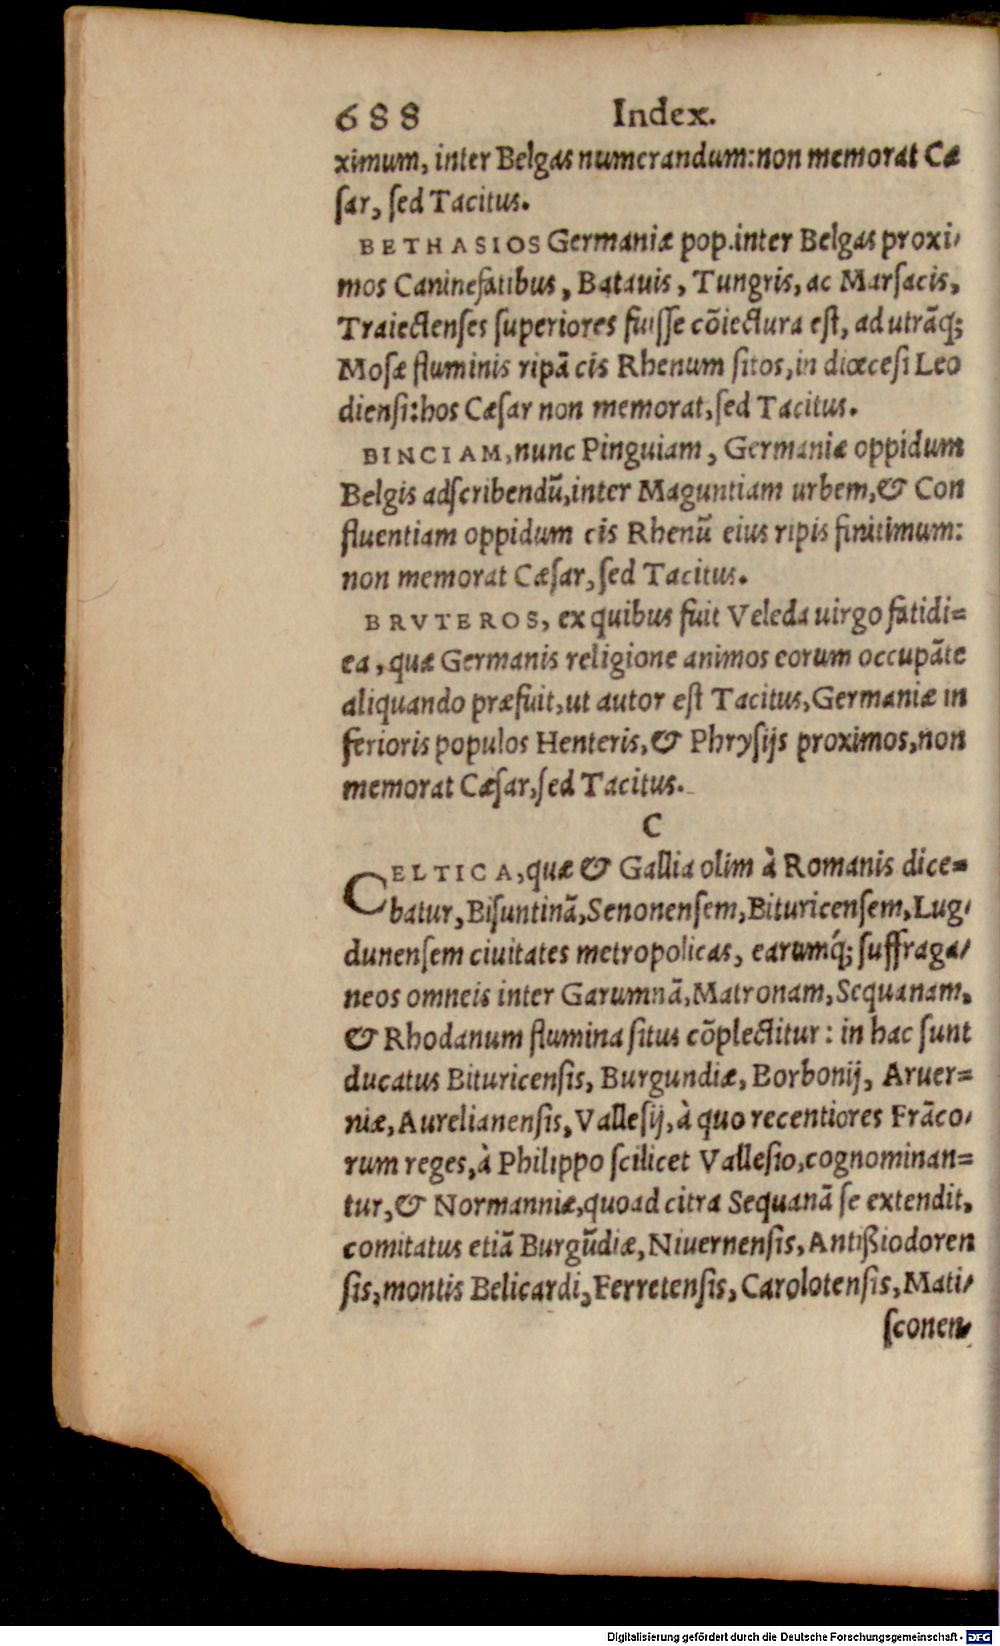 688 Index.
ximum, inter Belgas numerandum: non memorat Cæ
ſar, ſed Tacitus.
BETHASIOS Germaniæ pop. inter Belgas proxi/
mos Caninefatibus, Batauis, Tungris, ac Marſacis,
Traiectenſes ſuperiores fuiſſe cōiectura eſt, ad utrāq;
Moſæ fluminis ripā cis Rhenum ſitos, in diœceſi Leo
dienſi: hos Cæſar non memorat, ſed Tacitus.
BINCIAM, nunc Pinguiam, Germaniæ oppidum
Belgis adſcribendū, inter Maguntiam urbem, & Con
fluentiam oppidum cis Rhenū eius ripis finitimum:
non memorat Cæſar, ſed Tacitus.
BRVTEROS, ex quibus fuit Veleda uirgo fatidi=
ca, quæ Germanis religione animos eorum occupāte
aliquando præfuit, ut autor eſt Tacitus, Germaniæ in
ferioris populos Henteris, & Phryſijs proximos, non
memorat Cæſar, ſed Tacitus.
C
CELTICA, quæ & Gallia olim à Romanis dice=
batur, Biſuntinā, Senonenſem, Bituricenſem, Lug/
dunenſem ciuitates metropolicas, earumq́; ſuffraga/
neos omneis inter Garumnā, Matronam, Sequanam,
& Rhodanum flumina ſitus cōplectitur: in hac ſunt
ducatus Bituricenſis, Burgundiæ, Borbonij, Aruer=
niæ, Aurelianenſis, Valleſij, à quo recentiores Frāco/
rum reges, à Philippo ſcilicet Valleſio, cognominan=
tur, & Normanniæ, quoad citra Sequanā ſe extendit,
comitatus etiā Burgūdiæ, Niuernenſis, Antißiodoren
ſis, montis Belicardi, Ferretenſis, Carolotenſis, Mati/
ſconen/
Digitalisierung gefördert durch die Deutsche Forschungsgemeinschaft - DFG